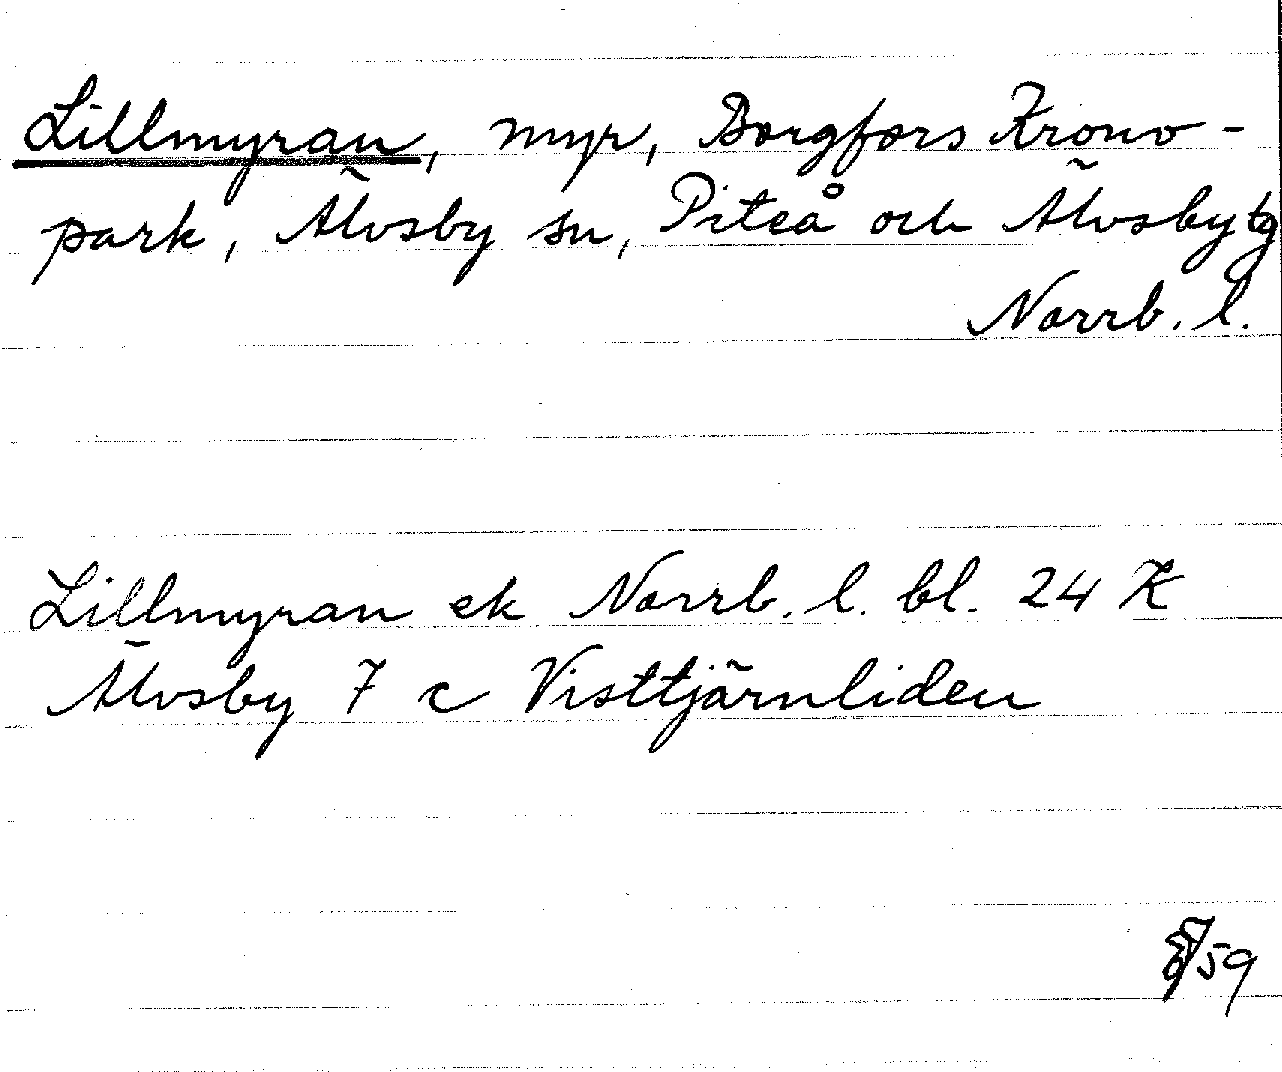 Lillmyran, myr, Borgfors Krono-
park, Älvsby sn, Piteå och Älvsby tg
Norrb. l.
Lillmyran ek Norrb. l. bl. 24 K
Älvsby 7 c Visttjärnliden
59